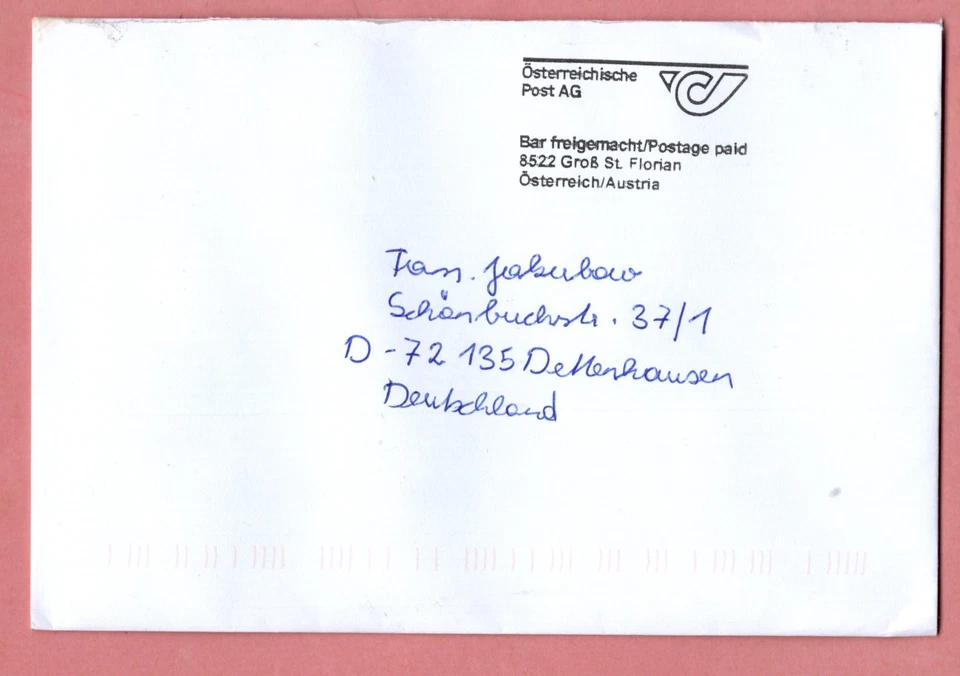 Österreichische
Post AG
Bar freigemacht/Postage paid
8522 Groß St. Florian
Österreich/Austria
Fam. Jakubow
Schönbuchstr. 37/1
D-72 135 Dettenhausen
Deutschland